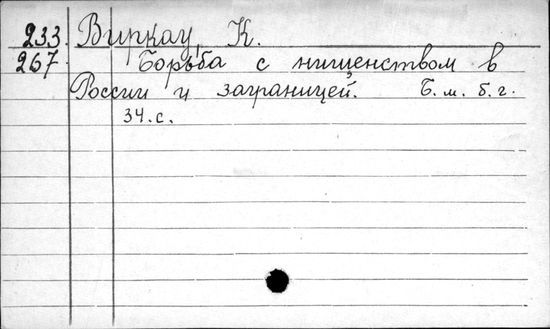 233. Виркау, К.
267. Борьба с нищенством в
России и заграницей. Б. м. б. г.
34.с.